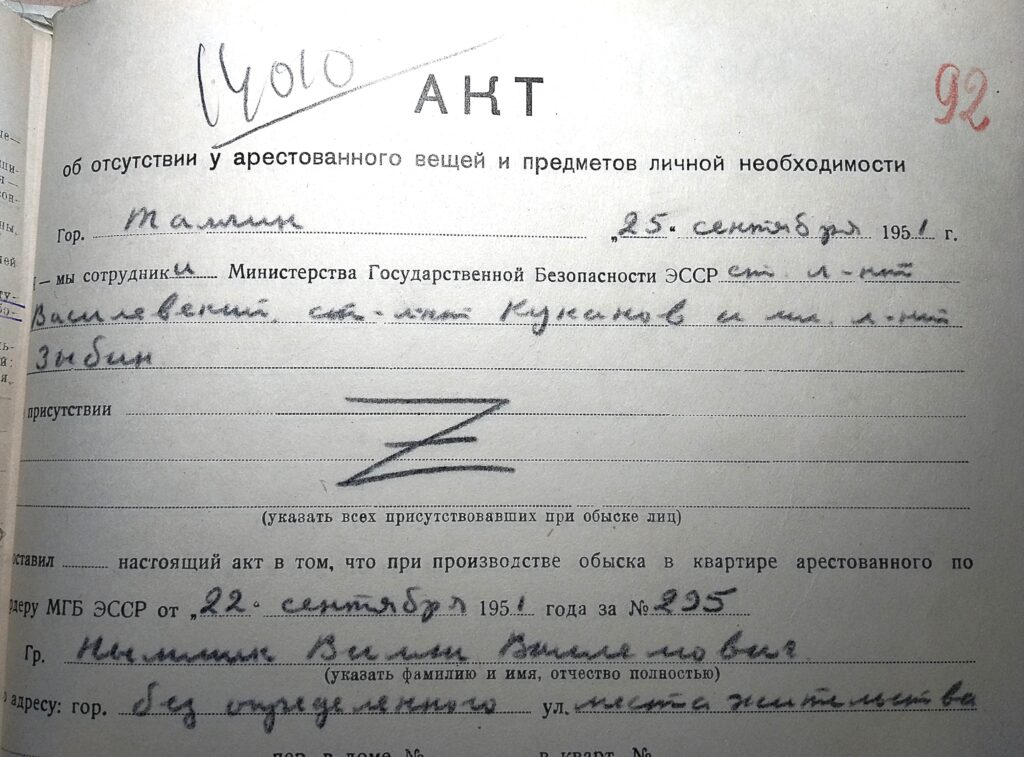 14010
АКТ
92
об отсутствии у арестованного вещей и предметов личной необходимости
Гор. Таллин „25" сентября 1951 г.
– мы сотрудники Министерства Государственной Безопасности ЭССР ст. л-нт
Василевский, ст. л-нт Куканов и мл. л-нт
Зыбин
присутствии
(указать всех присутствовавших при обыске лиц)
оставил настоящий акт в том, что при производстве обыска в квартире арестованного по
рдеру МГБ ЭССР от „22" сентября 1951 года за № 295
Гр. Ныммик Вилли Виллемович
(указать фамилию и имя, отчество полностью)
о адресу: гор. без определенного ул. места жительства
пер. в доме № в кварт. №